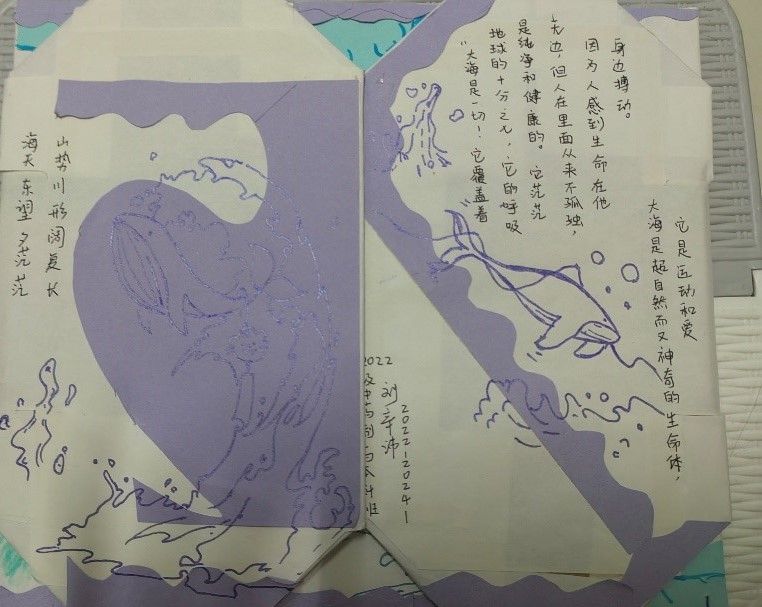 海天东望夕茫茫
山势川形阔复长
2022
刘
2022120241
“大海是一切！它覆盖着
地球的十分之七，它的呼吸
是纯净和健康的。它茫茫
无边，但人在里面从来不孤独，
因为人感到生命在他
身边搏动。
大海是超自然而又神奇的生命体，
它是运动和爱